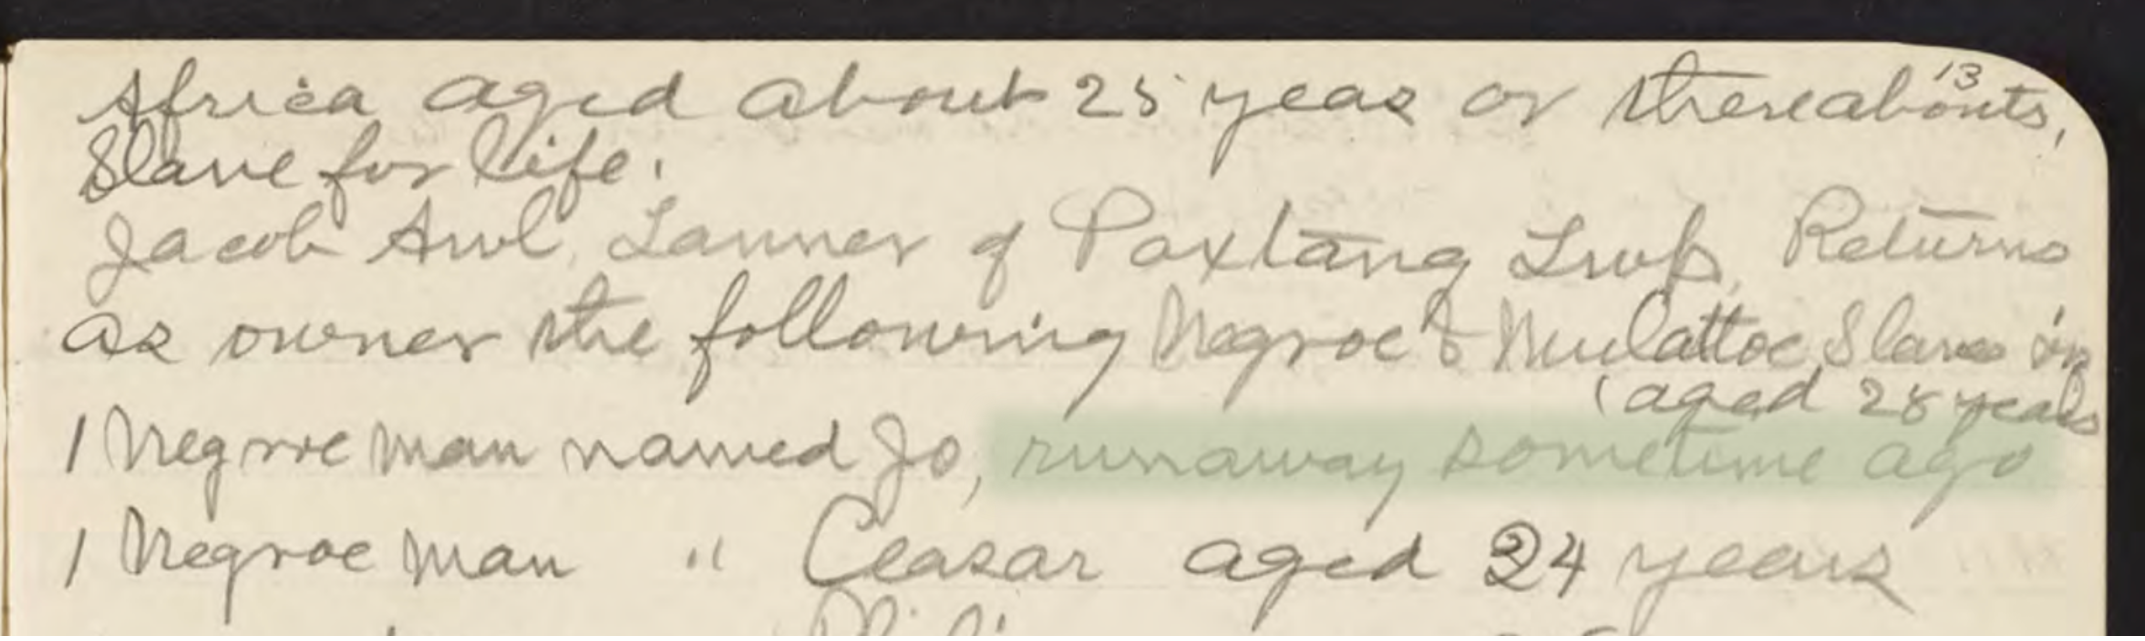 13
Africa aged about 25 years or thereabouts,
Slave for life.
Jacob Awl, Tanner of Paxtang Twp, Returns
as owner the following Negroe & Mulattoe Slaves
(aged 28 years
1 Negroe man named Jo, runaway sometime ago
1 Negroe man " Ceasar aged 24 years